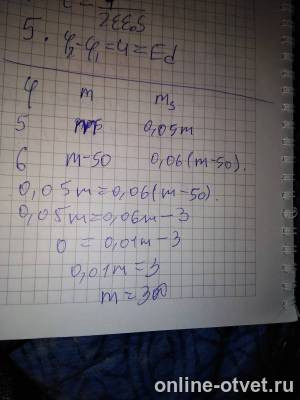 2εε0S
5. φ₂-φ₁=U=Ed
φ m m₃
5 m 0,05m
6 m-50 0,06(m-50).
0,05m=0,06(m-50).
0,05m=0,06m-3
0 = 0,01m-3
0,01m=3
m=300
online-otvet.ru